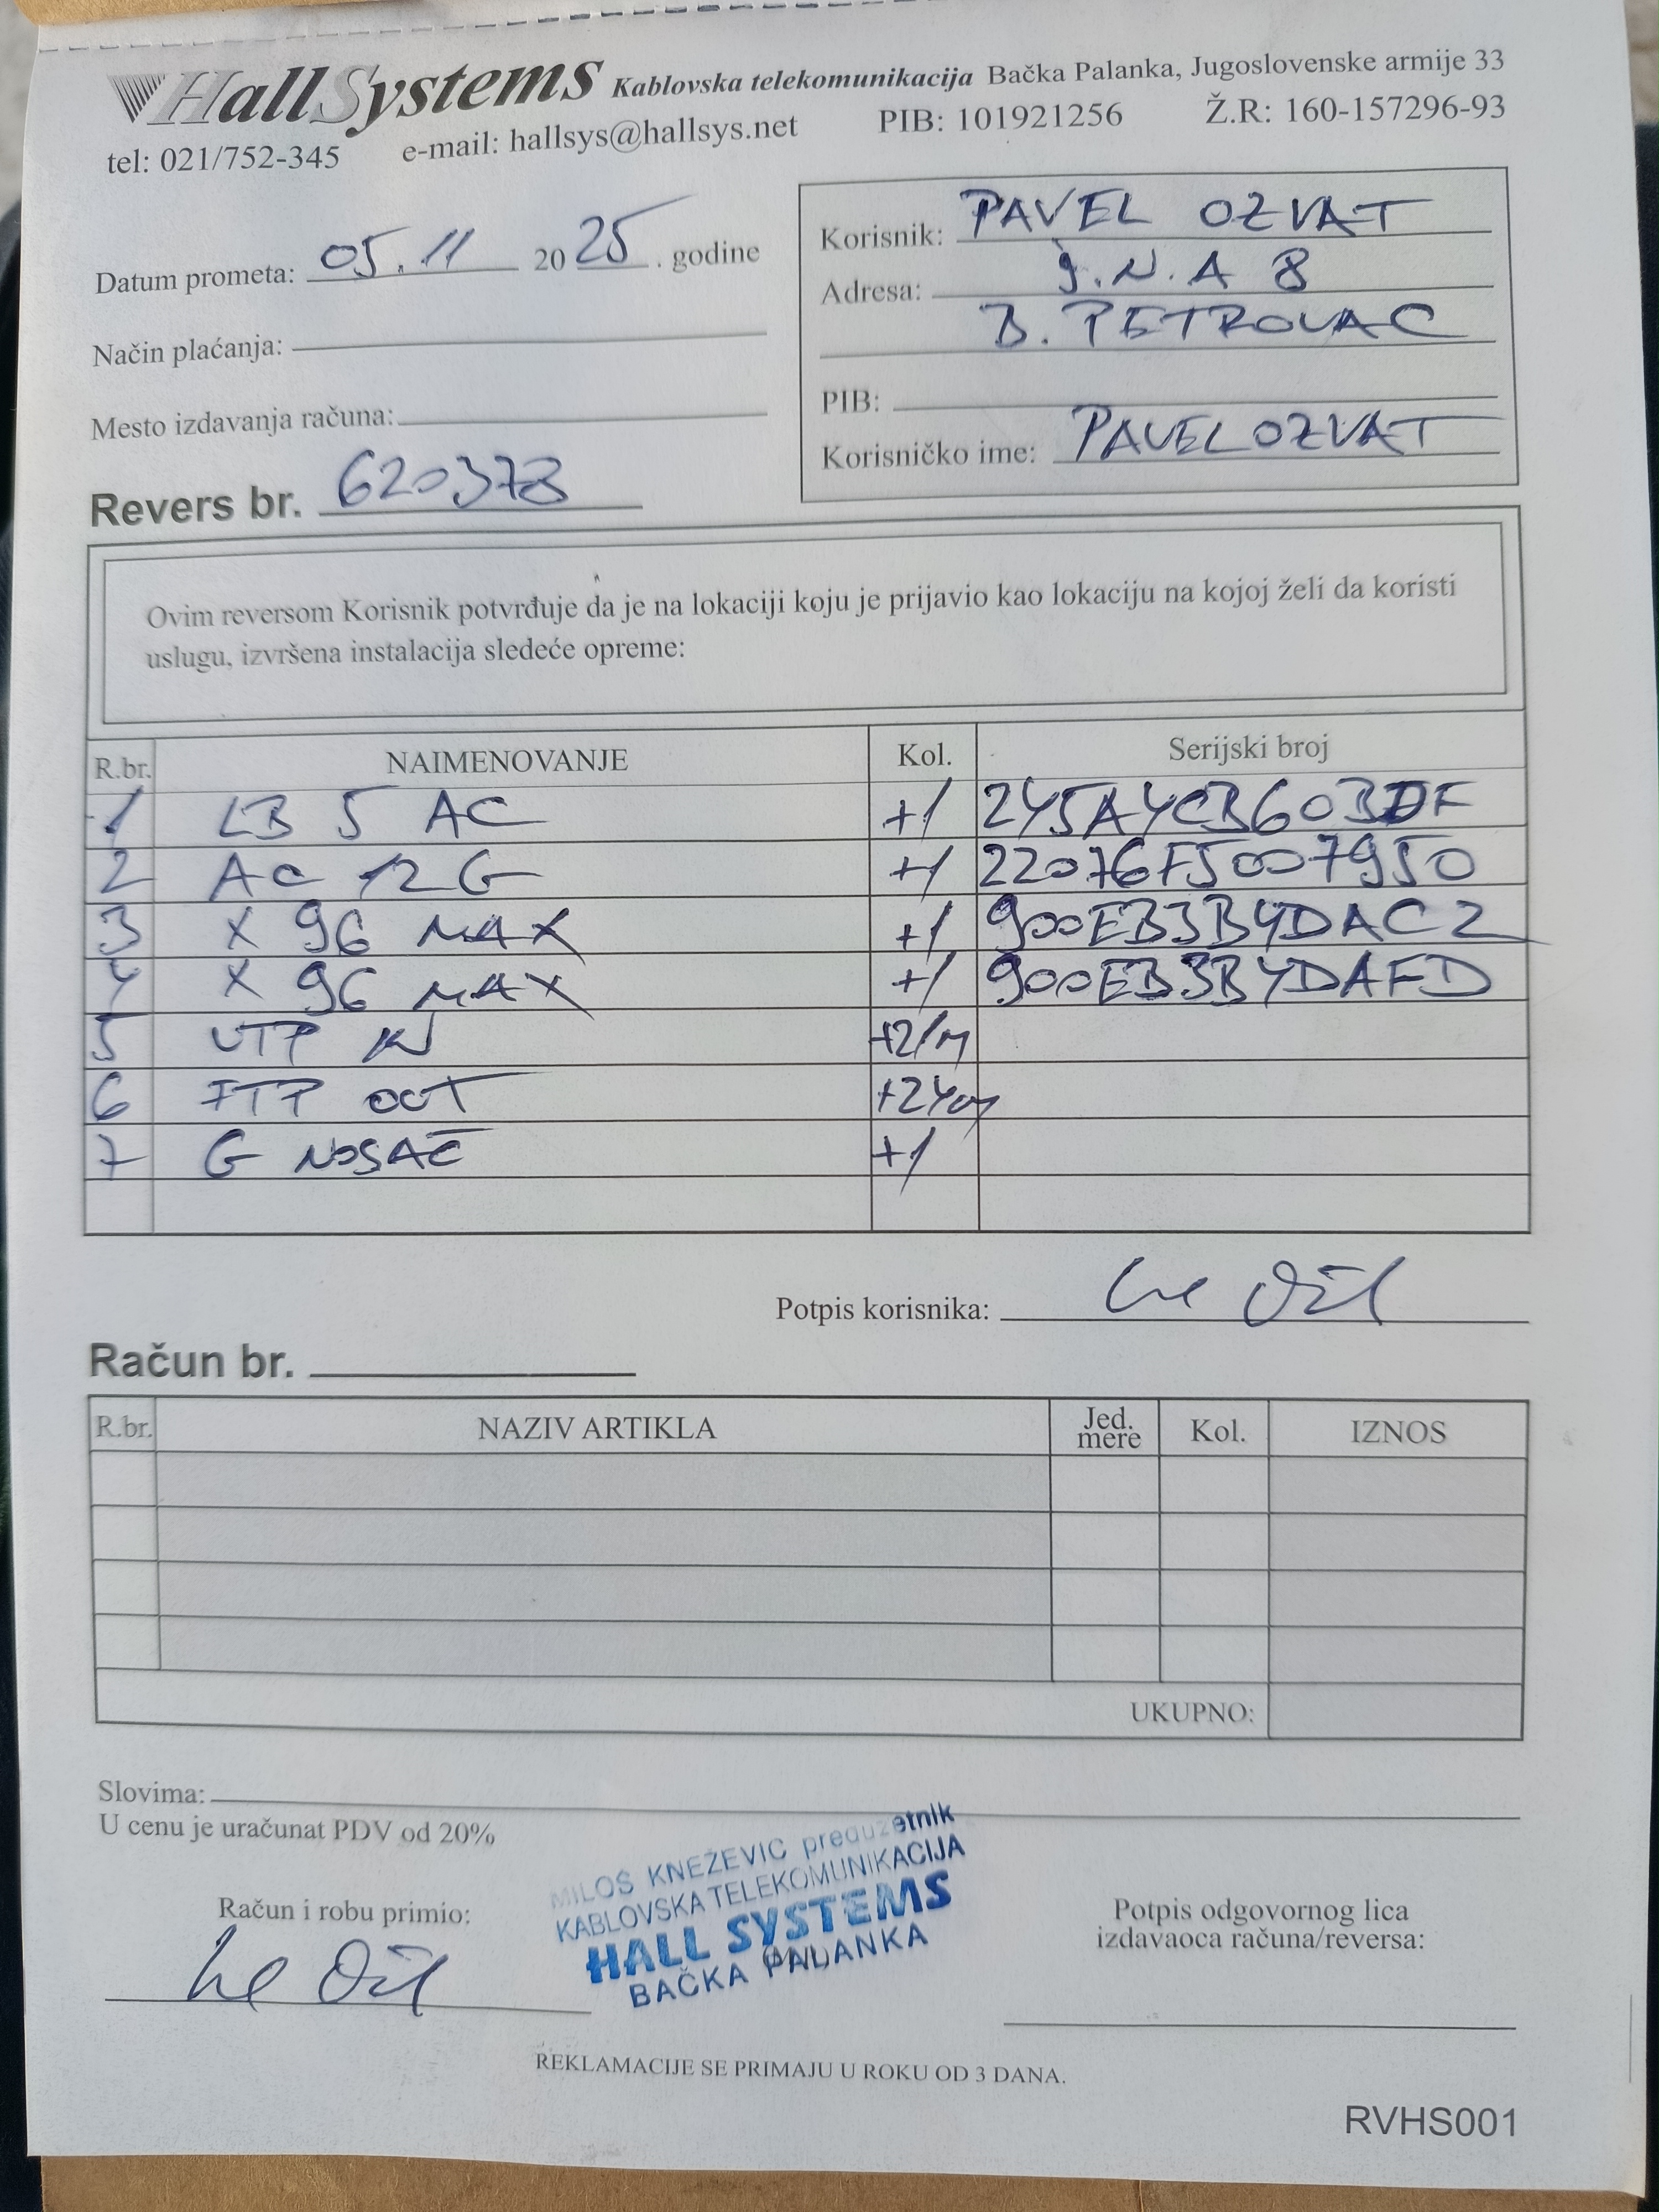 HallSystems Kablovska telekomunikacija Bačka Palanka, Jugoslovenske armije 33
tel: 021/752-345 e-mail: hallsys@hallsys.net PIB: 101921256 Ž.R: 160-157296-93
Datum prometa: 05.11 2025. godine
Način plaćanja:
Mesto izdavanja računa:
Revers br. 620378
Korisnik: PAVEL OZVAT
Adresa: J.N.A 8
B. PETROVAC
PIB:
Korisničko ime: PAVELOZVAT
Ovim reversom Korisnik potvrđuje da je na lokaciji koju je prijavio kao lokaciju na kojoj želi da koristi
uslugu, izvršena instalacija sledeće opreme:
R.br. NAIMENOVANJE Kol. Serijski broj
1 LB 5 AC +1 245A4CB60BDF
2 AC 12G +1 22076F5007950
3 X 96 MAX +1 900EB3B4DAC2
4 X 96 MAX +1 900EB3B4DAFD
5 UTP IN
6 FTP OUT
7 G NOSAČ +1
Potpis korisnika:
Račun br.
R.br. NAZIV ARTIKLA Jed. mere Kol. IZNOS
UKUPNO:
Slovima:
U cenu je uračunat PDV od 20%
MILOŠ KNEŽEVIĆ preduzetnik
KABLOVSKA TELEKOMUNIKACIJA
HALL SYSTEMS
BAČKA PALANKA
Račun i robu primio:
Potpis odgovornog lica
izdavaoca računa/reversa:
REKLAMACIJE SE PRIMAJU U ROKU OD 3 DANA.
RVHS001